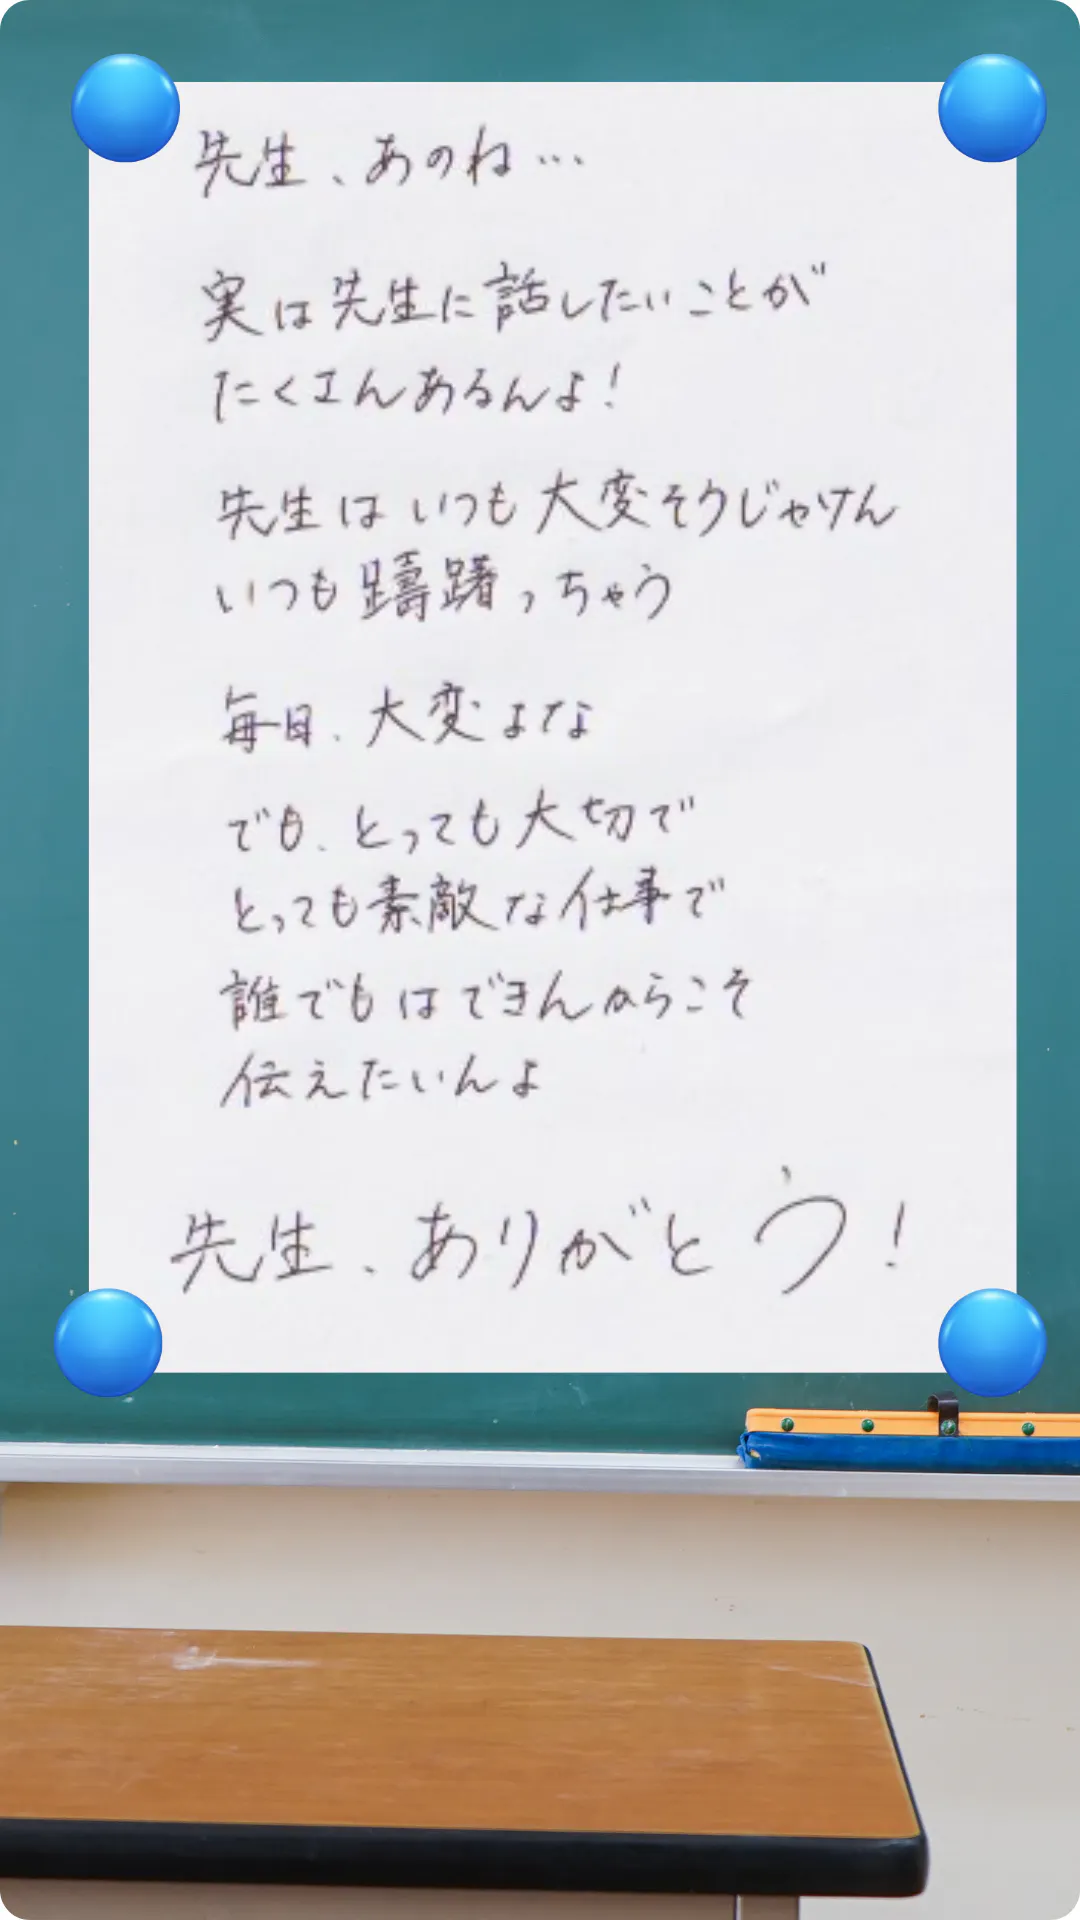 先生、あのね…
実は先生に話したいことが
たくさんあるんよ！
先生はいつも大変そうじゃけん
いつも躊躇っちゃう
毎日、大変よな
でも、とっても大切で
とっても素敵な仕事で
誰でもはできんからこそ
伝えたいんよ
先生、ありがとう！